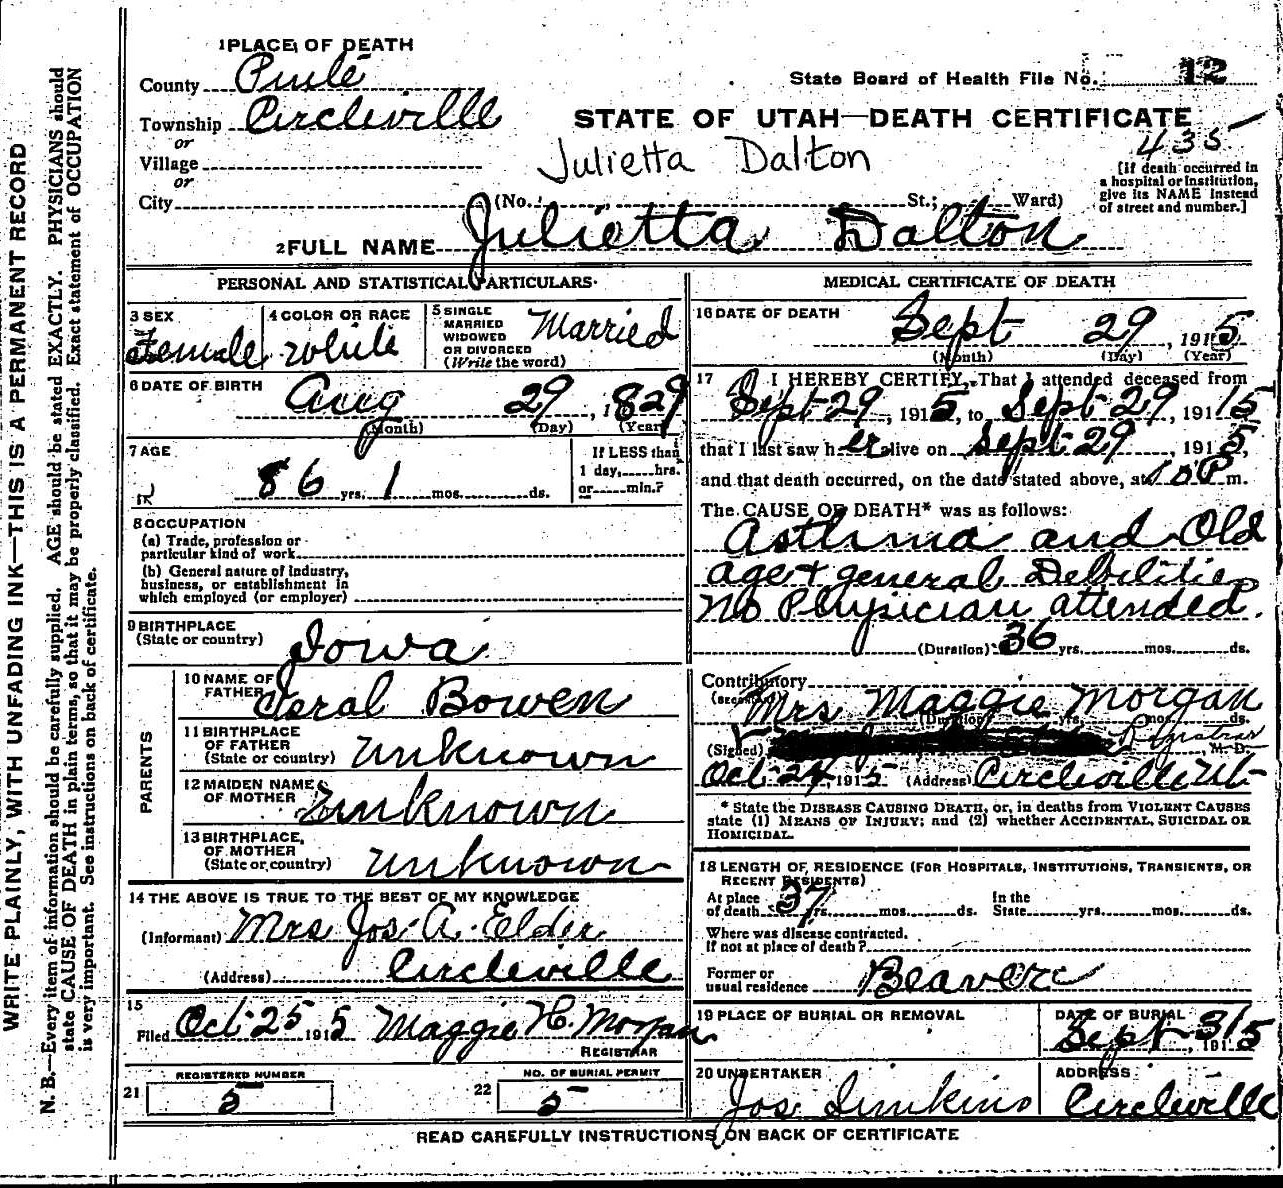 WRITE PLAINLY, WITH UNFADING INK—THIS IS A PERMANENT RECORD
N. B.—Every item of information should be carefully supplied. AGE should be stated EXACTLY. PHYSICIANS should
state CAUSE OF DEATH in plain terms, so that it may be properly classified. Exact statement of OCCUPATION
is very important. See instructions on back of certificate.
1 PLACE OF DEATH
County Piute
State Board of Health File No. 12
Township Circleville
STATE OF UTAH—DEATH CERTIFICATE
or
Village
Julietta Dalton
435
or
City (No. St.; Ward)
[If death occurred in
a hospital or institution,
give its NAME instead
of street and number.]
2 FULL NAME Julietta Dalton
PERSONAL AND STATISTICAL PARTICULARS
3 SEX
Female
4 COLOR OR RACE
White
5 SINGLE
MARRIED
WIDOWED
OR DIVORCED
(Write the word)
Married
6 DATE OF BIRTH
Aug 29, 1829
(Month) (Day) (Year)
7 AGE
86 yrs. 1 mos. ds.
If LESS than
1 day, hrs.
or min.?
8 OCCUPATION
(a) Trade, profession or
particular kind of work
(b) General nature of industry,
business, or establishment in
which employed (or employer)
9 BIRTHPLACE
(State or country)
Iowa
PARENTS
10 NAME OF
FATHER
Bowen
11 BIRTHPLACE
OF FATHER
(State or country)
unknown
12 MAIDEN NAME
OF MOTHER
unknown
13 BIRTHPLACE
OF MOTHER
(State or country)
unknown
14 THE ABOVE IS TRUE TO THE BEST OF MY KNOWLEDGE
(Informant) Mrs Jos. A. Elder
(Address) Circleville
15
Filed Oct 25 1915 Maggie H. Morgan
REGISTRAR
21 REGISTERED NUMBER
5
22 NO. OF BURIAL PERMIT
5
MEDICAL CERTIFICATE OF DEATH
16 DATE OF DEATH
Sept 29, 1915
(Month) (Day) (Year)
17 I HEREBY CERTIFY, That I attended deceased from
Sept 29, 1915, to Sept 29, 1915
that I last saw her alive on Sept 29, 1915,
and that death occurred, on the date stated above, at P m.
The CAUSE OF DEATH* was as follows:
Asthma and Old
age + general
No Physician attended.
(Duration) 36 yrs. mos. ds.
Contributory
Mrs Maggie Morgan
(Duration) yrs. mos. ds.
(Signed) Registrar, M. D.
Oct 24, 1915 (Address) Circleville Ut
* State the DISEASE CAUSING DEATH, or, in deaths from VIOLENT CAUSES
state (1) MEANS OF INJURY; and (2) whether ACCIDENTAL, SUICIDAL OR
HOMICIDAL.
18 LENGTH OF RESIDENCE (FOR HOSPITALS, INSTITUTIONS, TRANSIENTS, OR
RECENT RESIDENTS)
At place
of death 37 yrs. mos. ds.
In the
State yrs. mos. ds.
Where was disease contracted,
if not at place of death?
Former or
usual residence Beaver
19 PLACE OF BURIAL OR REMOVAL
DATE OF BURIAL
Sept 1915
20 UNDERTAKER
Jos Simkins
ADDRESS
Circleville
READ CAREFULLY INSTRUCTIONS ON BACK OF CERTIFICATE